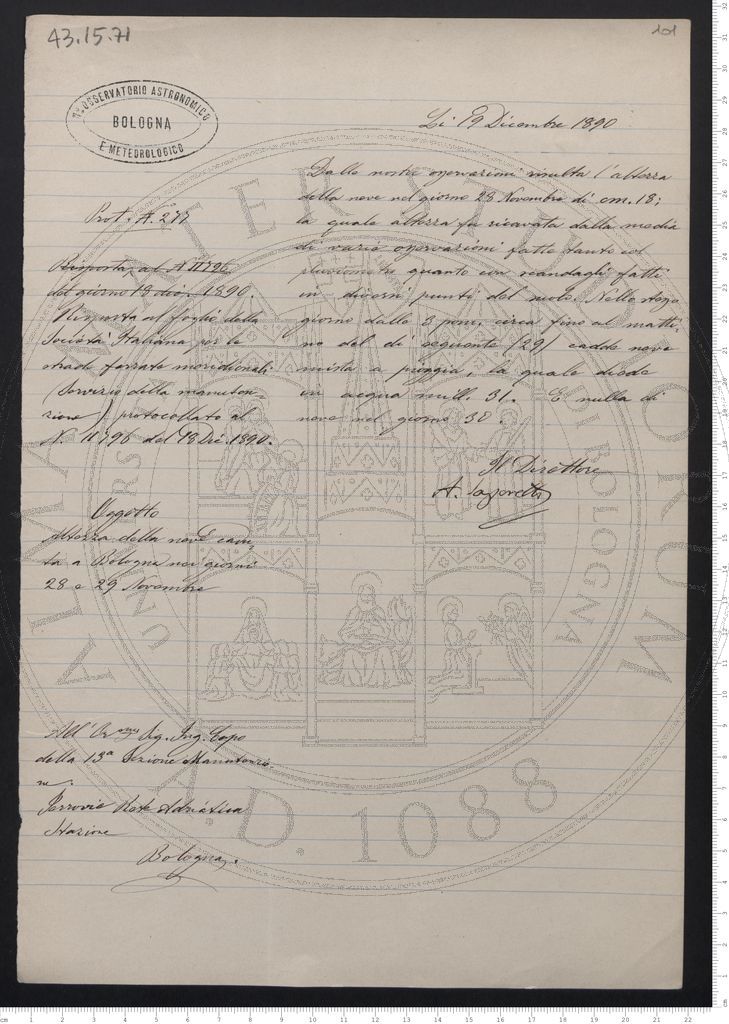 43.15.71
101
R.º OSSERVATORIO ASTRONOMICO
BOLOGNA
E METEOROLOGICO
Li 19 Dicembre 1890
Prot. N.º 277
Risposta al N 11796
del giorno 18 dic. 1890.
Risposta al foglio della
Società Italiana per le
strade ferrate meridionali
(Servizio della manuten-
zione) protocollato al
N. 11796 del 18 Dic. 1890.
Oggetto
Altezza della neve cadu
ta a Bologna nei giorni
28 e 29 Novembre
Dalle nostre osservazioni risulta l'altezza
della neve nel giorno 28 Novembre di cm. 18;
la quale altezza fu ricavata dalla media
di varie osservazioni fatte tanto col
pluviometro quanto con scandagli fatti
in diversi punti del suolo. Nello stesso
giorno dalle 3 pom. circa fino al matti-
no del dì seguente (29) cadde neve
mista a pioggia, la quale diede
in acqua mill. 31. E nulla di
neve nel giorno 30.
Il Direttore
A. Saporetti
All' Sig. Ing. Capo
della 13ª Sezione Manutenzio
ne.
Ferrovia Rete Adriatica
Stazione
Bologna.
ALMA MATER STUDIORUM
UNIVERSITAS BONONIENSIS
A.D. 1088